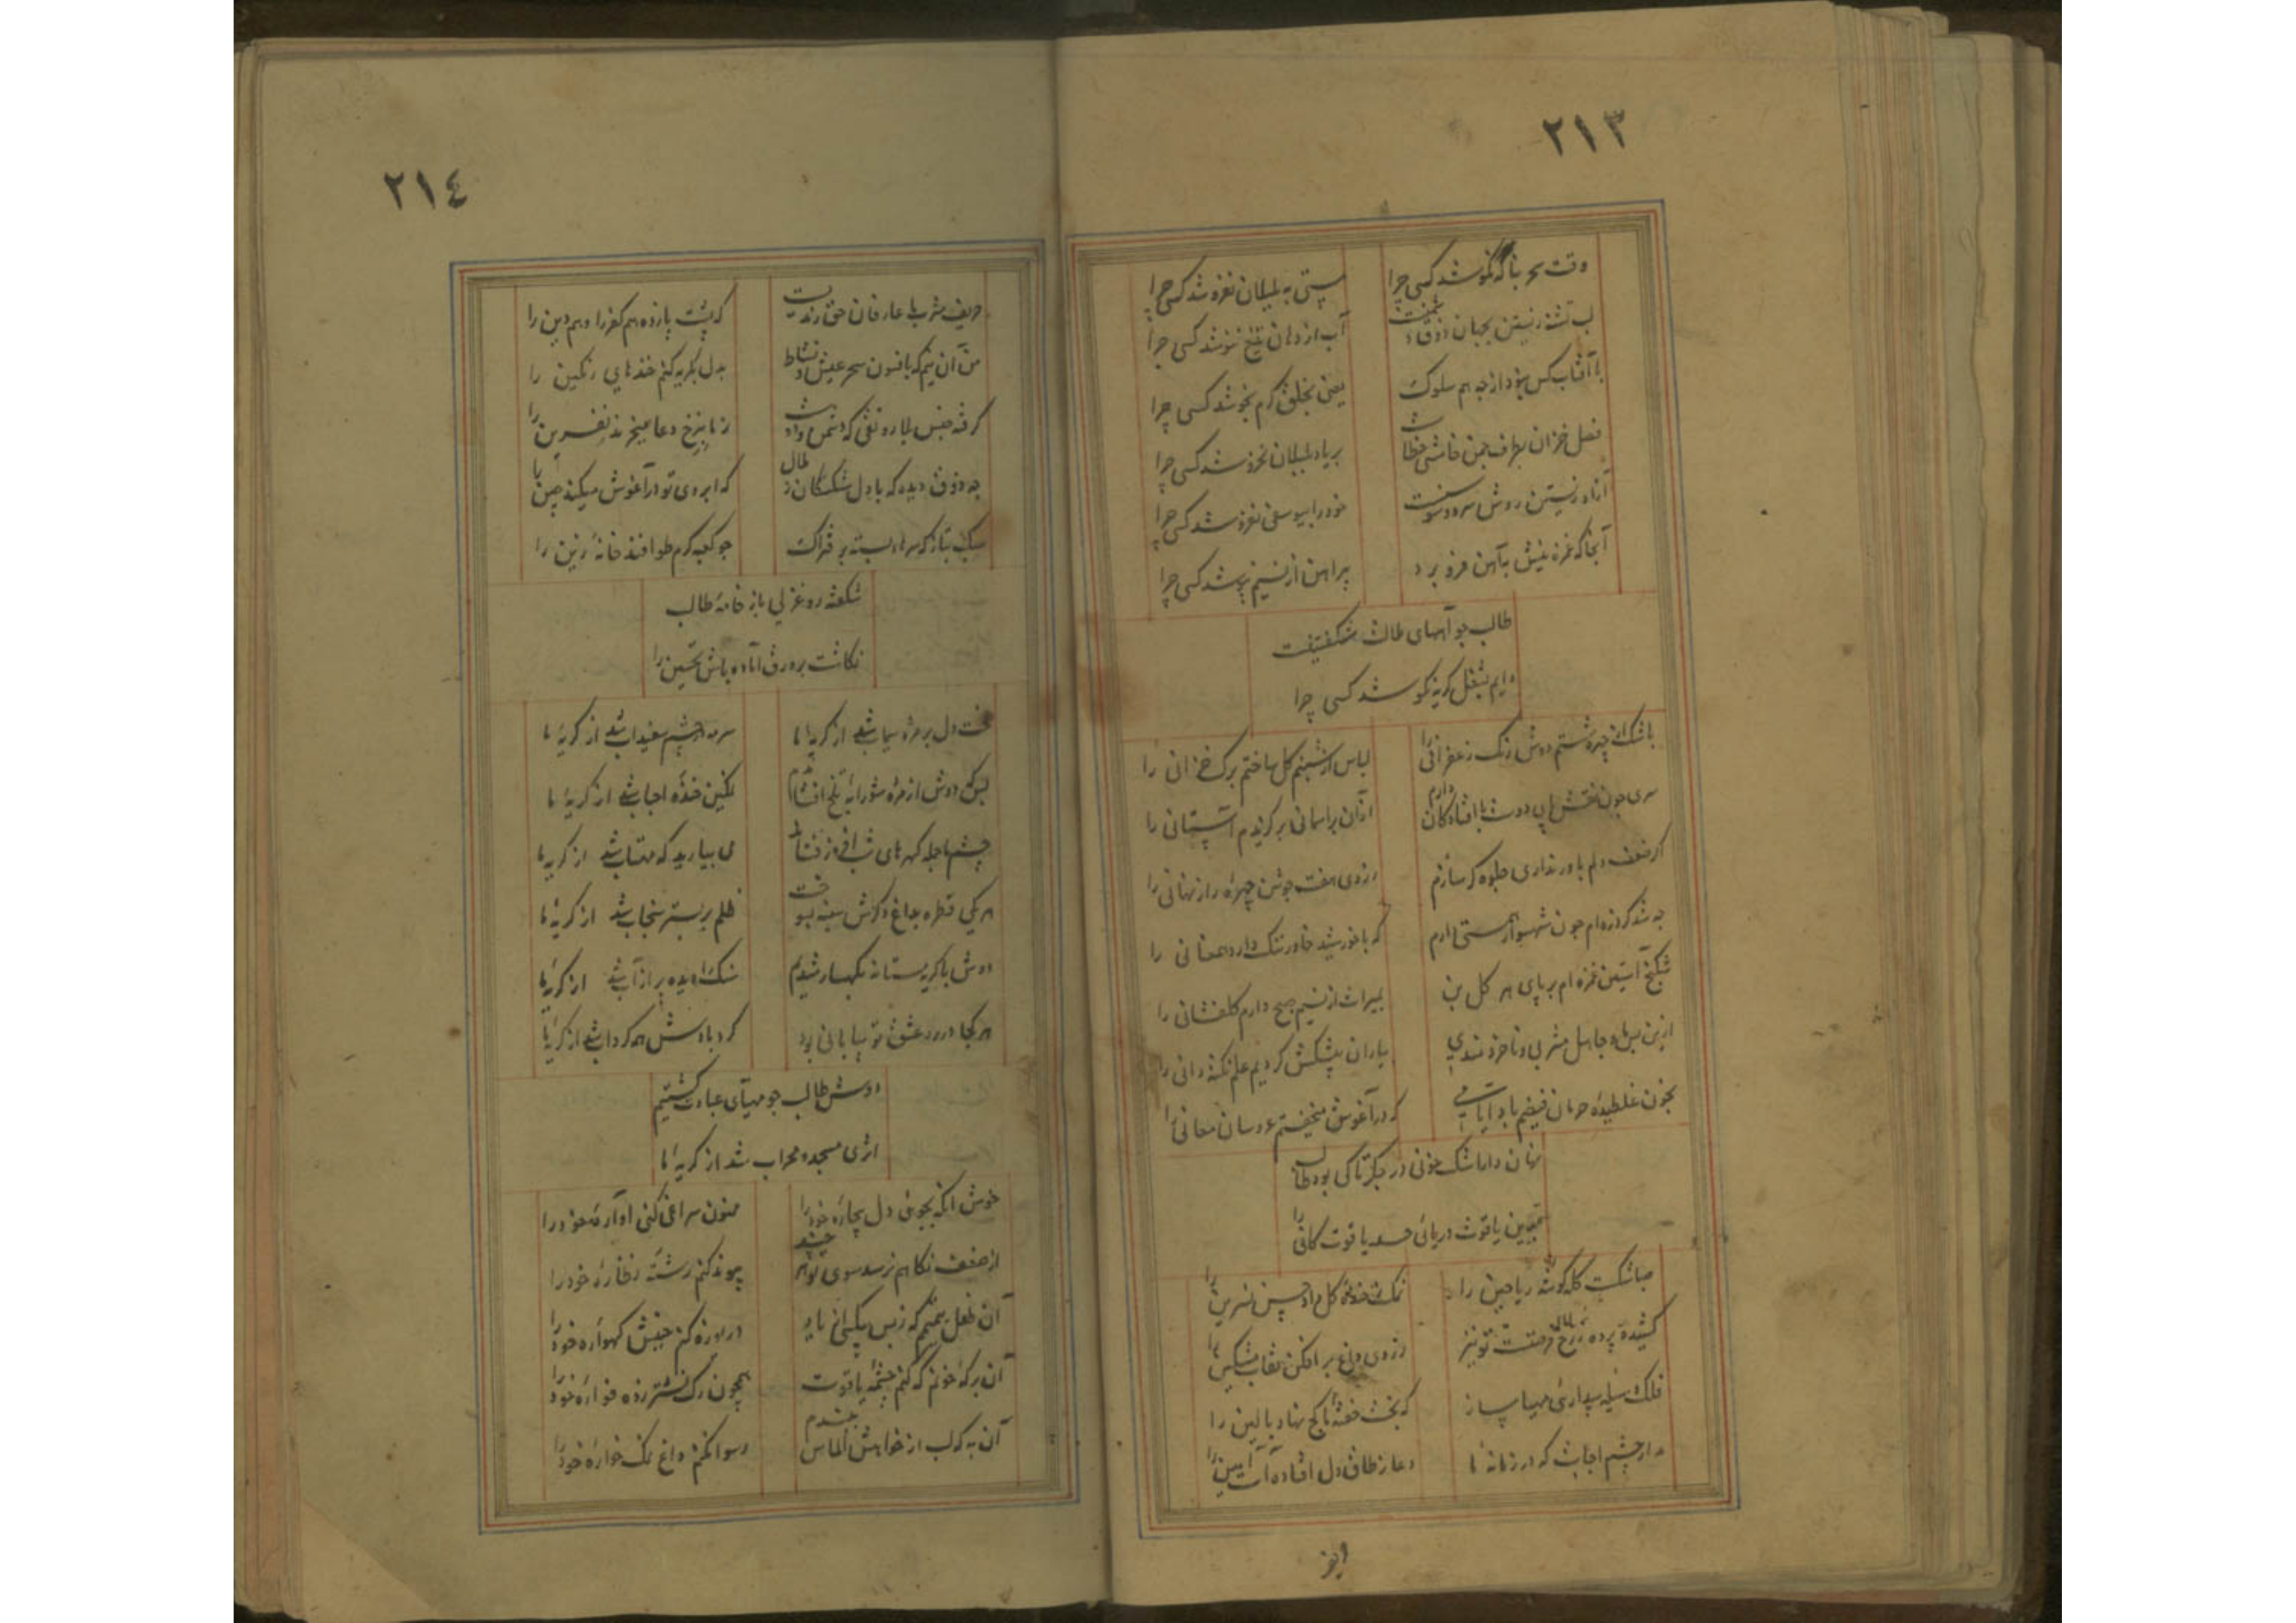 ٢١٣
وقت سحر بناله نکوشد کسی چرا
مستی به بلبلان نفروشد کسی چرا
لب تشنه زیستن بجهان ذوق
آب از دهان تیغ ننوشد کسی چرا
با آفتاب کس بود از چه هم سلوک
یعنی بخلق گرم نجوشد کسی چرا
فصل خزان بطرف چمن خامشی خطاست
بر یاد بلبلان نخروشد کسی چرا
آزاد زیستن روش سرو و سوسنست
خود را بیوسفی نفروشد کسی چرا
آنجا که غمزه نیش بآهن فرو برد
پیراهن از نسیم نپوشد کسی چرا
طالب چو آبهای طالت شکفتیفت
دایم بشغل گریه نکوشد کسی چرا
باشک از چهره شستم دوش رنگ زعفرانی را
لباس از شبنم گل ساختم برگ خزانی را
سری چون نقش پای دوست با افتادگان دارم
ازان بر آسمانی برگزیدم آستانی را
گر ضعف دلم باور نداری جلوه گر سازم
ز روی هفت جوشن چهره راز نهانی را
چه شد گر ذره ام چون شهسوار همتی دارم
که با خورشید خاور تنگ دارد همعنانی را
شکنج آستین غمزه ام بر پای هر گل بن
بمیراث از نسیم صبح دارم گلفشانی را
ازین پس ما و جاهل مشربی و ناخردمندی
بیاران پیشکش کردیم علم نکته دانی را
بخون غلطیده حرمان فیضم یاد ایامی
که در آغوش میخفتم عروسان معانی را
نهان دار اشک خونی در جگر تا کی بود طالب
ببین یاقوت دریائی حسد یاقوت کانی را
صبا شکست کله گوشه ریاحین را
نمک ز خنده گل داد حسن نسرین را
کشیده پرده ز رخ فرصتت تو نیز
ز روی داغ بر افکن نقاب مشکین را
فلک وسیله بیداری مهیا ساز
که بخت خفته ما کج نهاد بالین را
مدار چشم اجابت که در زمانه ما
دعا ز طاق دل افتاده است آمین را
٢١٤
حریف مشرب ما عارفان حق رندیست
که پشت پا زده هم کفر را و هم دین را
من آن نیم که بافسون سحر عیش و نشاط
بدل بگریه کنم خنده های رنگین را
گرفته جنس بلا رونقی که دشمن و دوست
ز ما بنرخ دعا میخرند نفرین را
چه ذوق دیده که با دل شکستگان ز ملال
که ابروی تو در آغوش میکشد چین را
سبک بتاز که سرهای بسته بر فتراک
چو کعبه گرم طوافند خانه زین را
شکفته رو غزلی باز خامه طالب
نگاشت بر ورق آماده باش تحسین را
لخت دل بر مژه سیماب شد از گریه ما
سرمه در چشم سفیداب شد از گریه ما
بسکه دوش از مژه شورابه تلخ افشاندیم
لگین خنده اجباب شد از گریه ما
چشم ما جمله گهرهای شب افروز فشاند
می بیارید که مهتاب شد از گریه ما
هر یکی قطره بداغ دگرش سینه بسوخت
ظلم بر بستر سنجاب شد از گریه ما
دوش با گریه مستانه بکهسار شدیم
سنگ را دیده پر از آب شد از گریه ما
هر کجا در ره عشق تو بیابانی بود
گرد بادش همه گرداب شد از گریه ما
دوش طالب چو مهیای عبادت گشتیم
ازی مسجد و محراب شد از گریه ما
خوش آنکه بجوئی دل بیچاره خود را
ممنون سراغی کنی آواره خود را
از ضعف نگاهم نرسد سوی تو هر چند
پیوند کنم رشته نظاره خود را
آن طفل یتیمم که ز بس بیکسی از باد
دریوزه کنم جنبش گهواره خود را
آن به که خونم که کنم چشمه یاقوت
همچون رگ نشتر زده فواره خود را
آن به که لب از خواهش الماس ببندم
رسوا نکنم داغ نمک خواره خود را